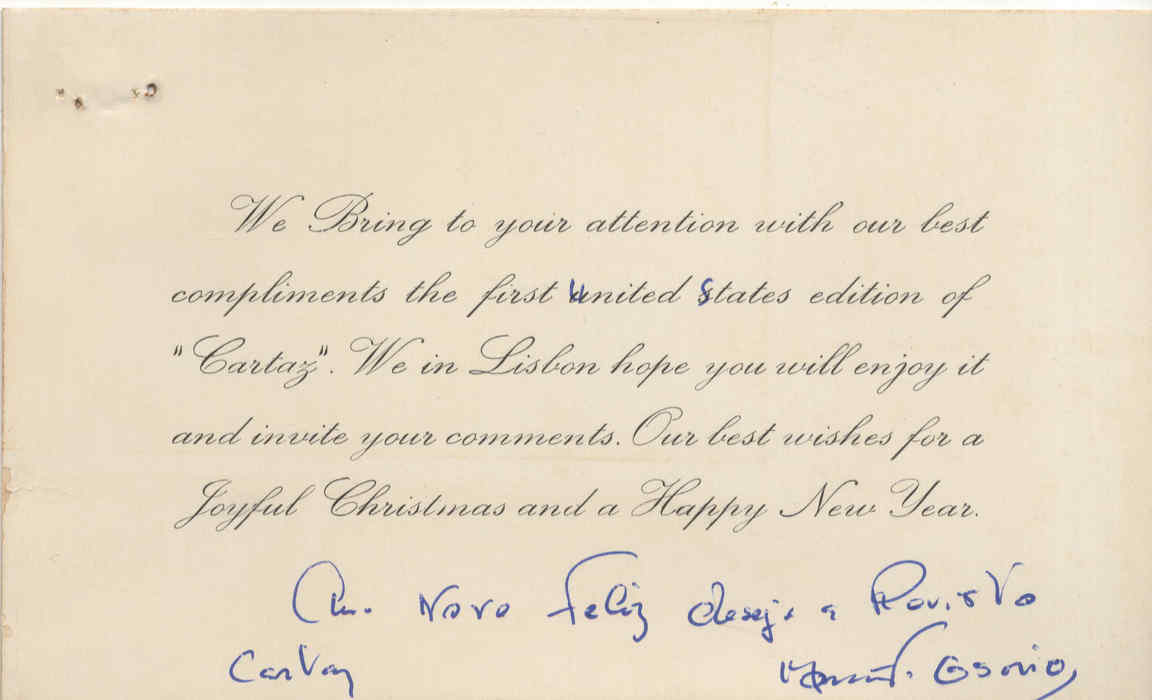 We Bring to your attention with our best
compliments the first United States edition of
"Cartaz". We in Lisbon hope you will enjoy it
and invite your comments. Our best wishes for a
Joyful Christmas and a Happy New Year.
Ano Novo Feliz deseja a Revista
Cartaz Osorio